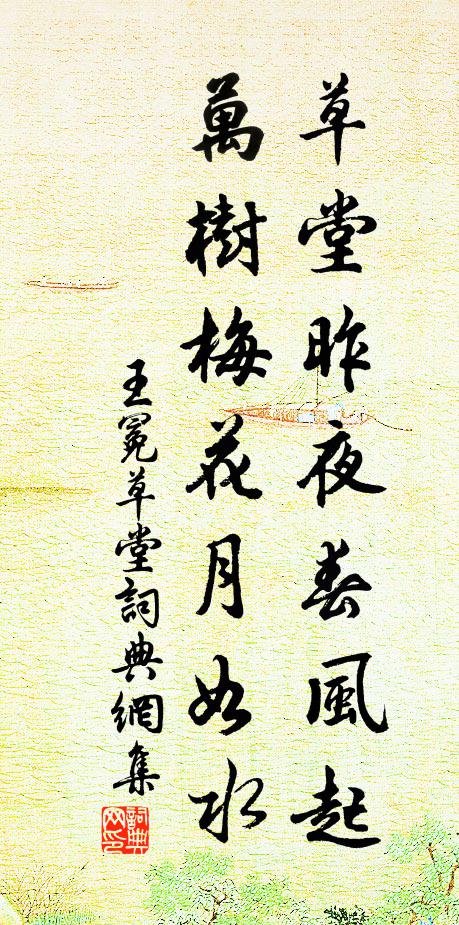 草堂昨夜春風起
萬樹梅花月如水
王冕草堂詞典網集
詞典网印